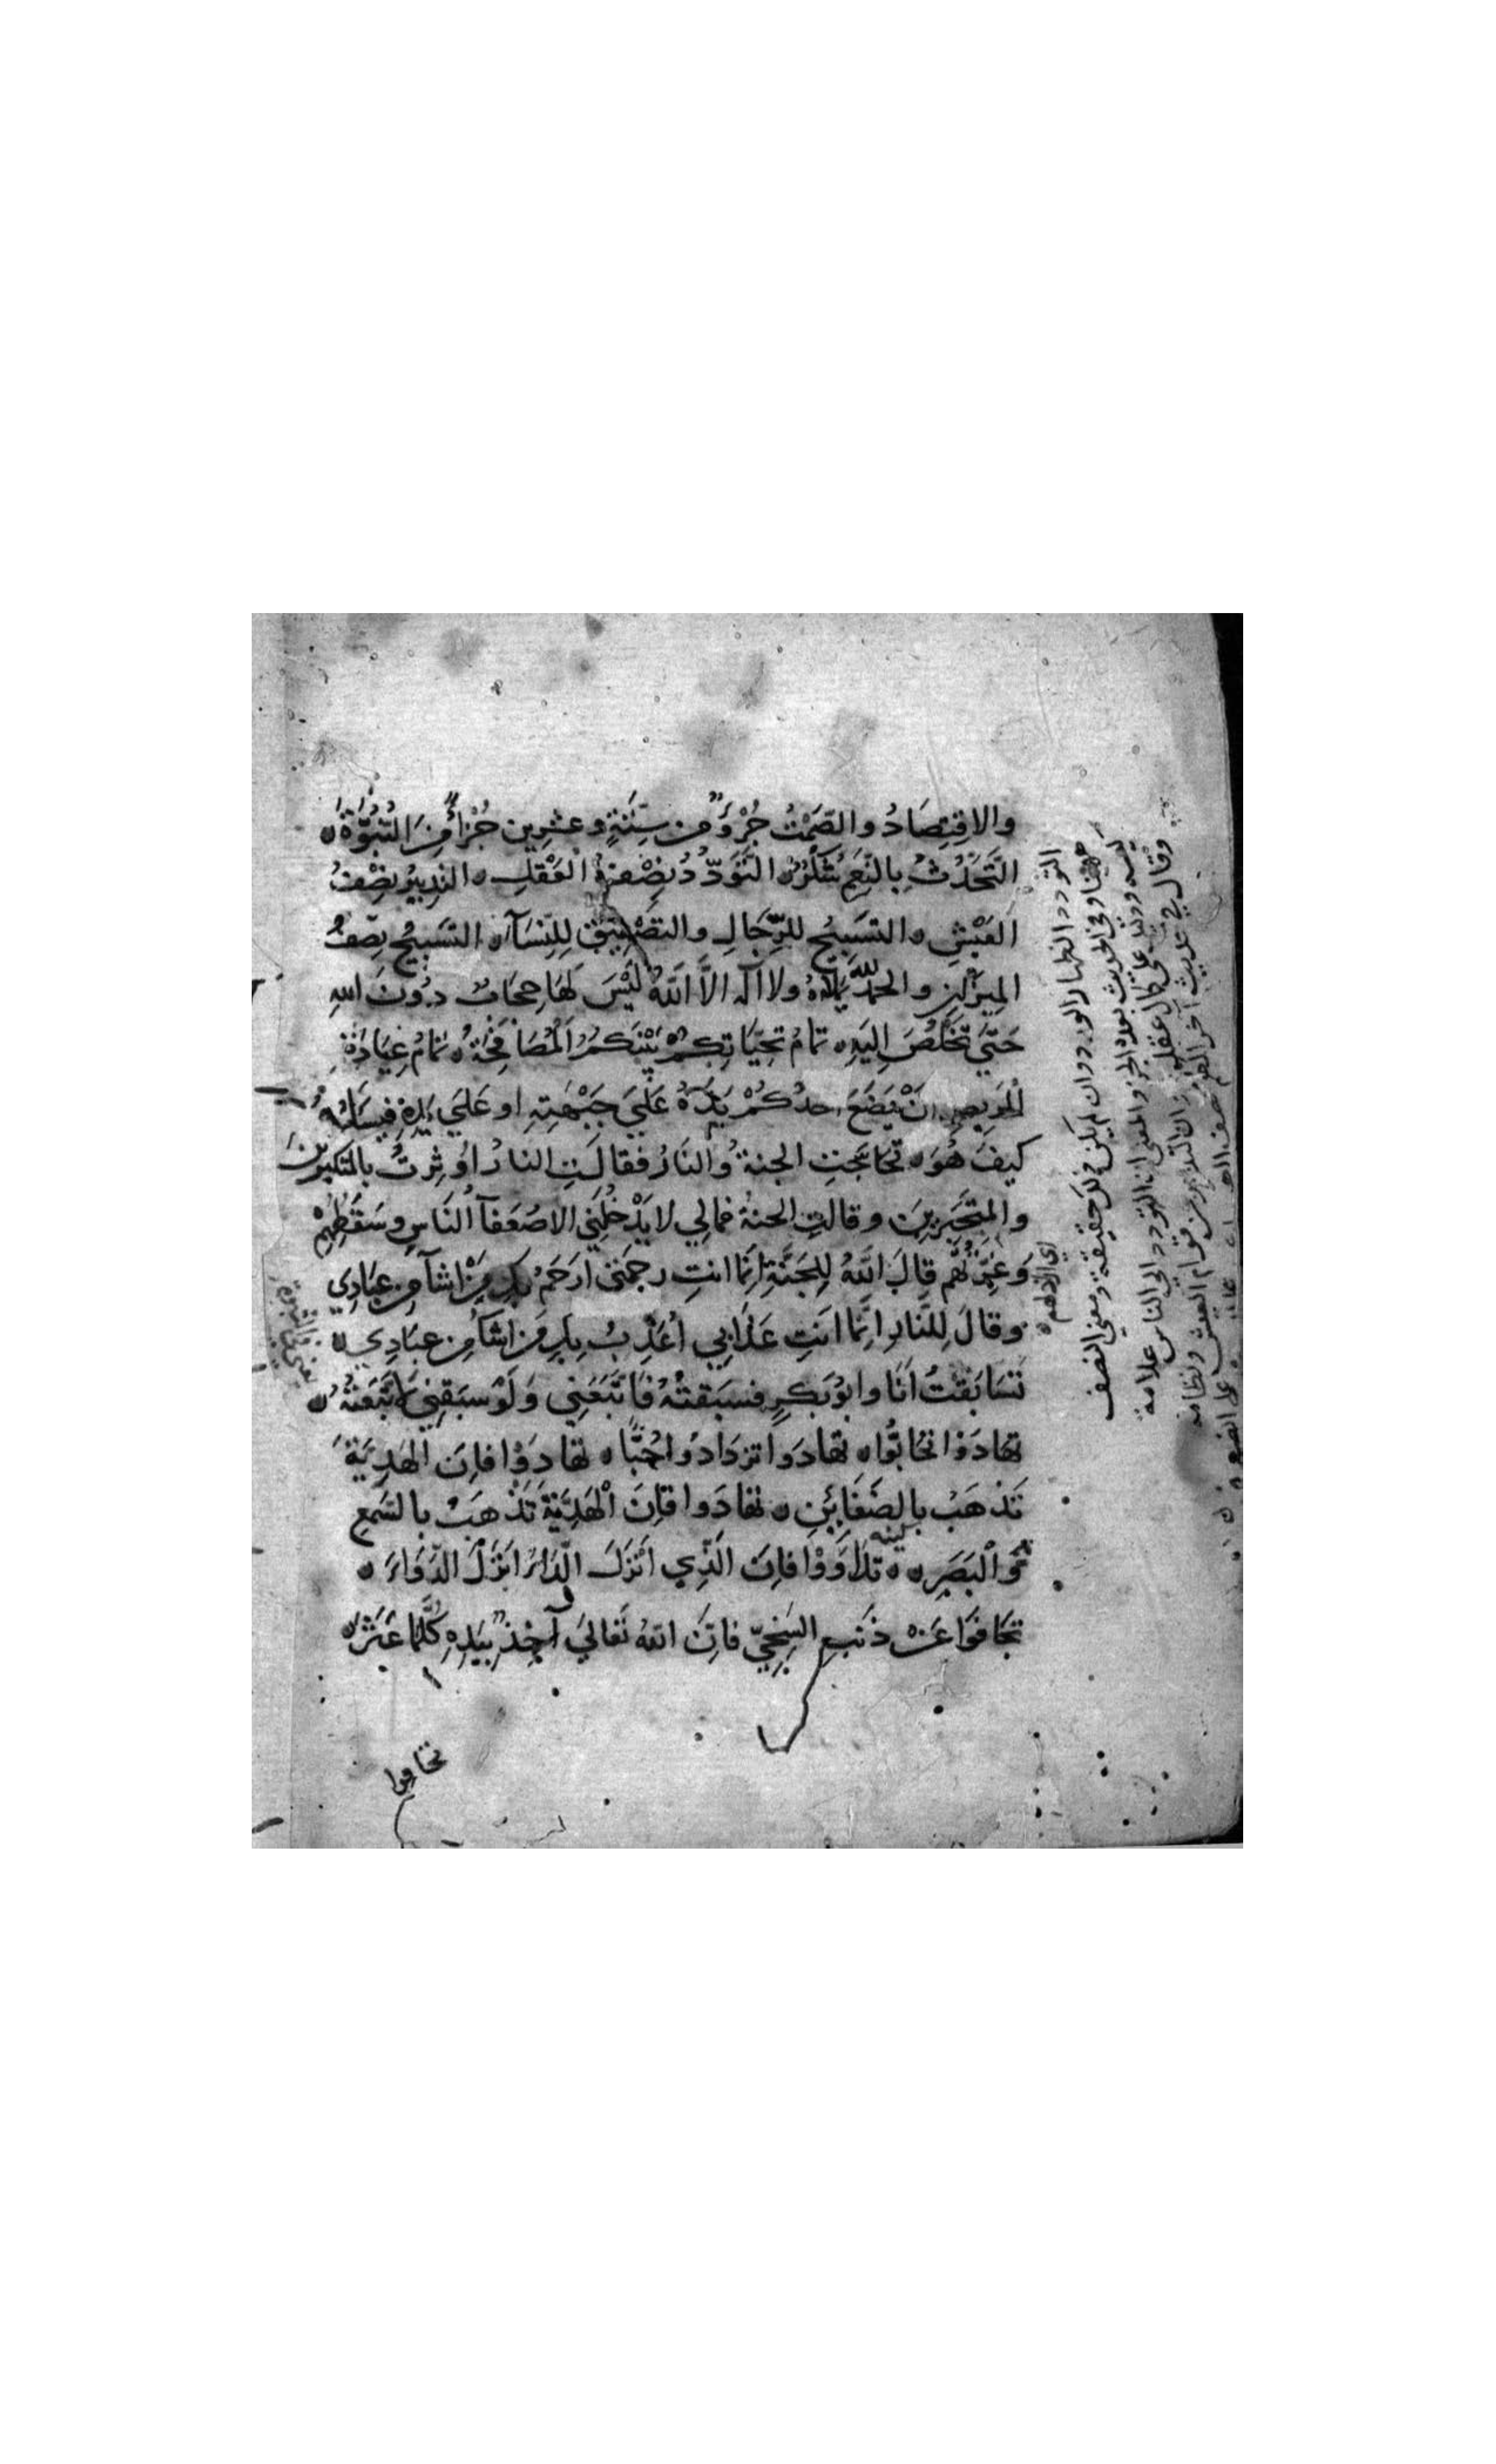 والاقتِصَادُ والصَّمْتُ جُزْؤٌ من سِتَّةٍ وعشرين جُزْأً مِنَ النُّبُوَّةِ ه
التَّحَدُّثُ بِالنِّعَمِ شُكْرٌ ه التَّوَدُّدُ نِصْفُ العَقْلِ ه التدبِيرُ نِصْفُ
العَيْشِ ه التسبيحُ للرِّجَالِ والتصْفِيقُ لِلنِّسَآءِ ه التسبيحُ نِصْفُ
المِيزَانِ والحمدُ للهِ يَمْلَاهُ ولا اله الاَّ اللَّهُ لَيْسَ لَهَا حِجَابٌ دُونَ اللهِ
حَتَّى تَخْلُصَ اِليَهِ ه تمامُ تحِيَّاتِكُمْ بَيْنَكُمُ المُصَافَحَةُ ه تمَامُ عِيَادَةِ
المَرِيضِ اَنْ يَضَعَ احدُكُمْ يَدَهُ عَلَى جَبْهَتِهِ او عَلَى يَدِهِ فيَسَلهُ
كيفَ هُوَ ه تحَاجَّتِ الجنةُ والنَارُ فقالَتِ النارُ اُوثِرْتُ بالمتكبرينَ
والمتجَبِّرِينَ وقالتِ الجنةُ فمالِي لا يَدْخُلُنِي الا ضُعَفآ النَّاسِ وسَقَطُهُمْ
وَغِرَّتُهُم قالَ اللَّهُ لِلجَنَّةِ اِنَّمَا انتِ رحمَتي ارَحَمُ بكِ مَنْ اشآ من عِبَادِي
وقالَ لِلنَّارِ اِنَّمَا انَتِ عَذَابِي اُعَذِّبُ بِكِ مَن اشآ من عِبَادِي ه
تسَابَقْتُ اَنَا وابوُ بَكرٍ فسَبَقتُهُ فَاتَّبَعَنِي وَلَوْ سبَقنِي لاتَّبَعْتُهُ ه
تهَادَوْا تحَابُّوا ه تهادَوا تزدَادُوا حُبًّا ه تهَادَوْا فاِنَ الهَدِيَّةَ
تَذهَبُ بالضَغَايِنِ ه تهَادَوا فاِنَ الْهَدِيَّةَ تَذْهَبُ بالسَّمعِ
وَالْبَصَرِ ه تدَاوَوْا فاِنَ الَّذِي اَنْزَلَ الدَّاءَ اَنْزَلَ الدَّوَاءَ ه
تجَافَوا عَنْ ذَنبِ السَّخِيِّ فاِنَّ اللهَ تَعَالَى آخِذٌ بِيَدِهِ كُلَّمَا عَثَرَ ه
التودد اظهار الود وان لم يكن ثم حقيقة ومعنى النصف